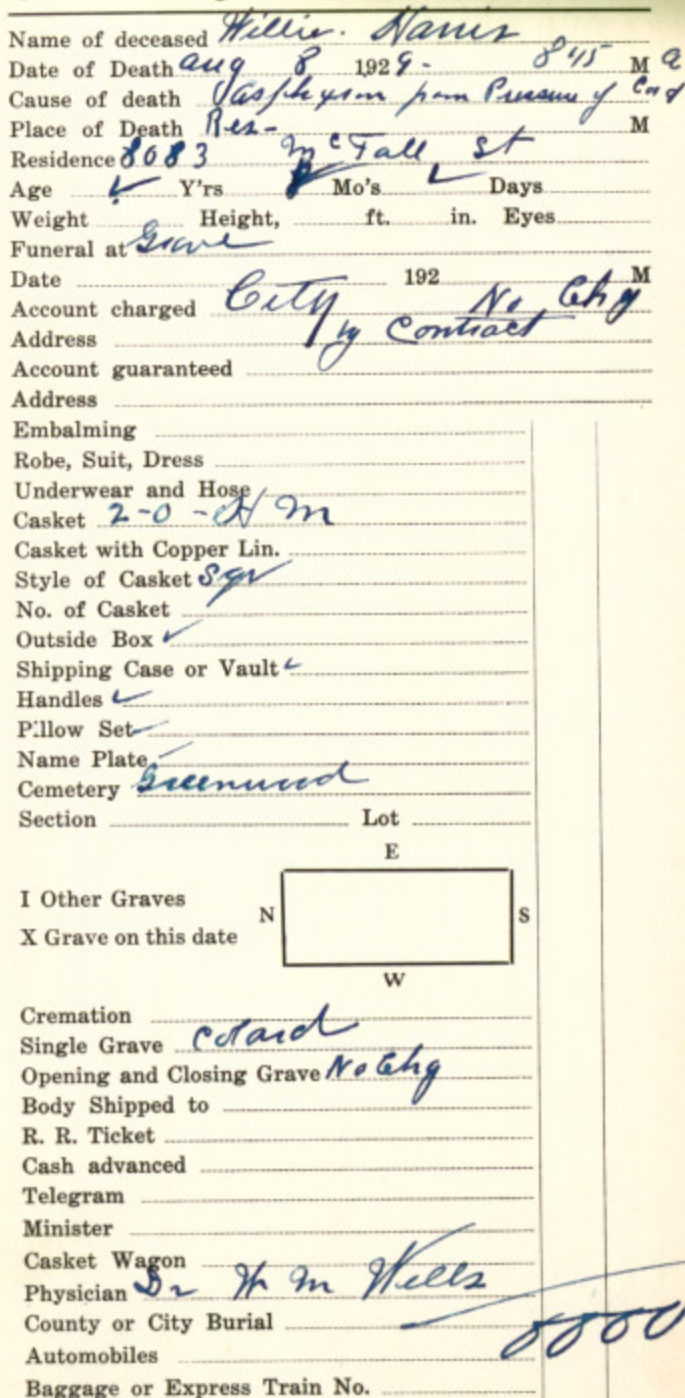 Name of deceased Willie. Harris
Date of Death Aug 8 1929- 845 M a
Cause of death from Pressure of Cord
Place of Death Res- M
Residence 8083 McFall St
Age Y'rs Mo's Days
Weight Height, ft. in. Eyes
Funeral at Grave
Date 192 M
Account charged City No Chg
Address by Contract
Account guaranteed
Address
Embalming
Robe, Suit, Dress
Underwear and Hose
Casket 2-0 - H M
Casket with Copper Lin.
Style of Casket Sqr
No. of Casket
Outside Box
Shipping Case or Vault
Handles
Pillow Set
Name Plate
Cemetery Greenwood
Section Lot
E
I Other Graves
N S
X Grave on this date
W
Cremation
Single Grave
Opening and Closing Grave No Chg
Body Shipped to
R. R. Ticket
Cash advanced
Telegram
Minister
Casket Wagon
Physician Dr W M Wells
County or City Burial
Automobiles
Baggage or Express Train No.